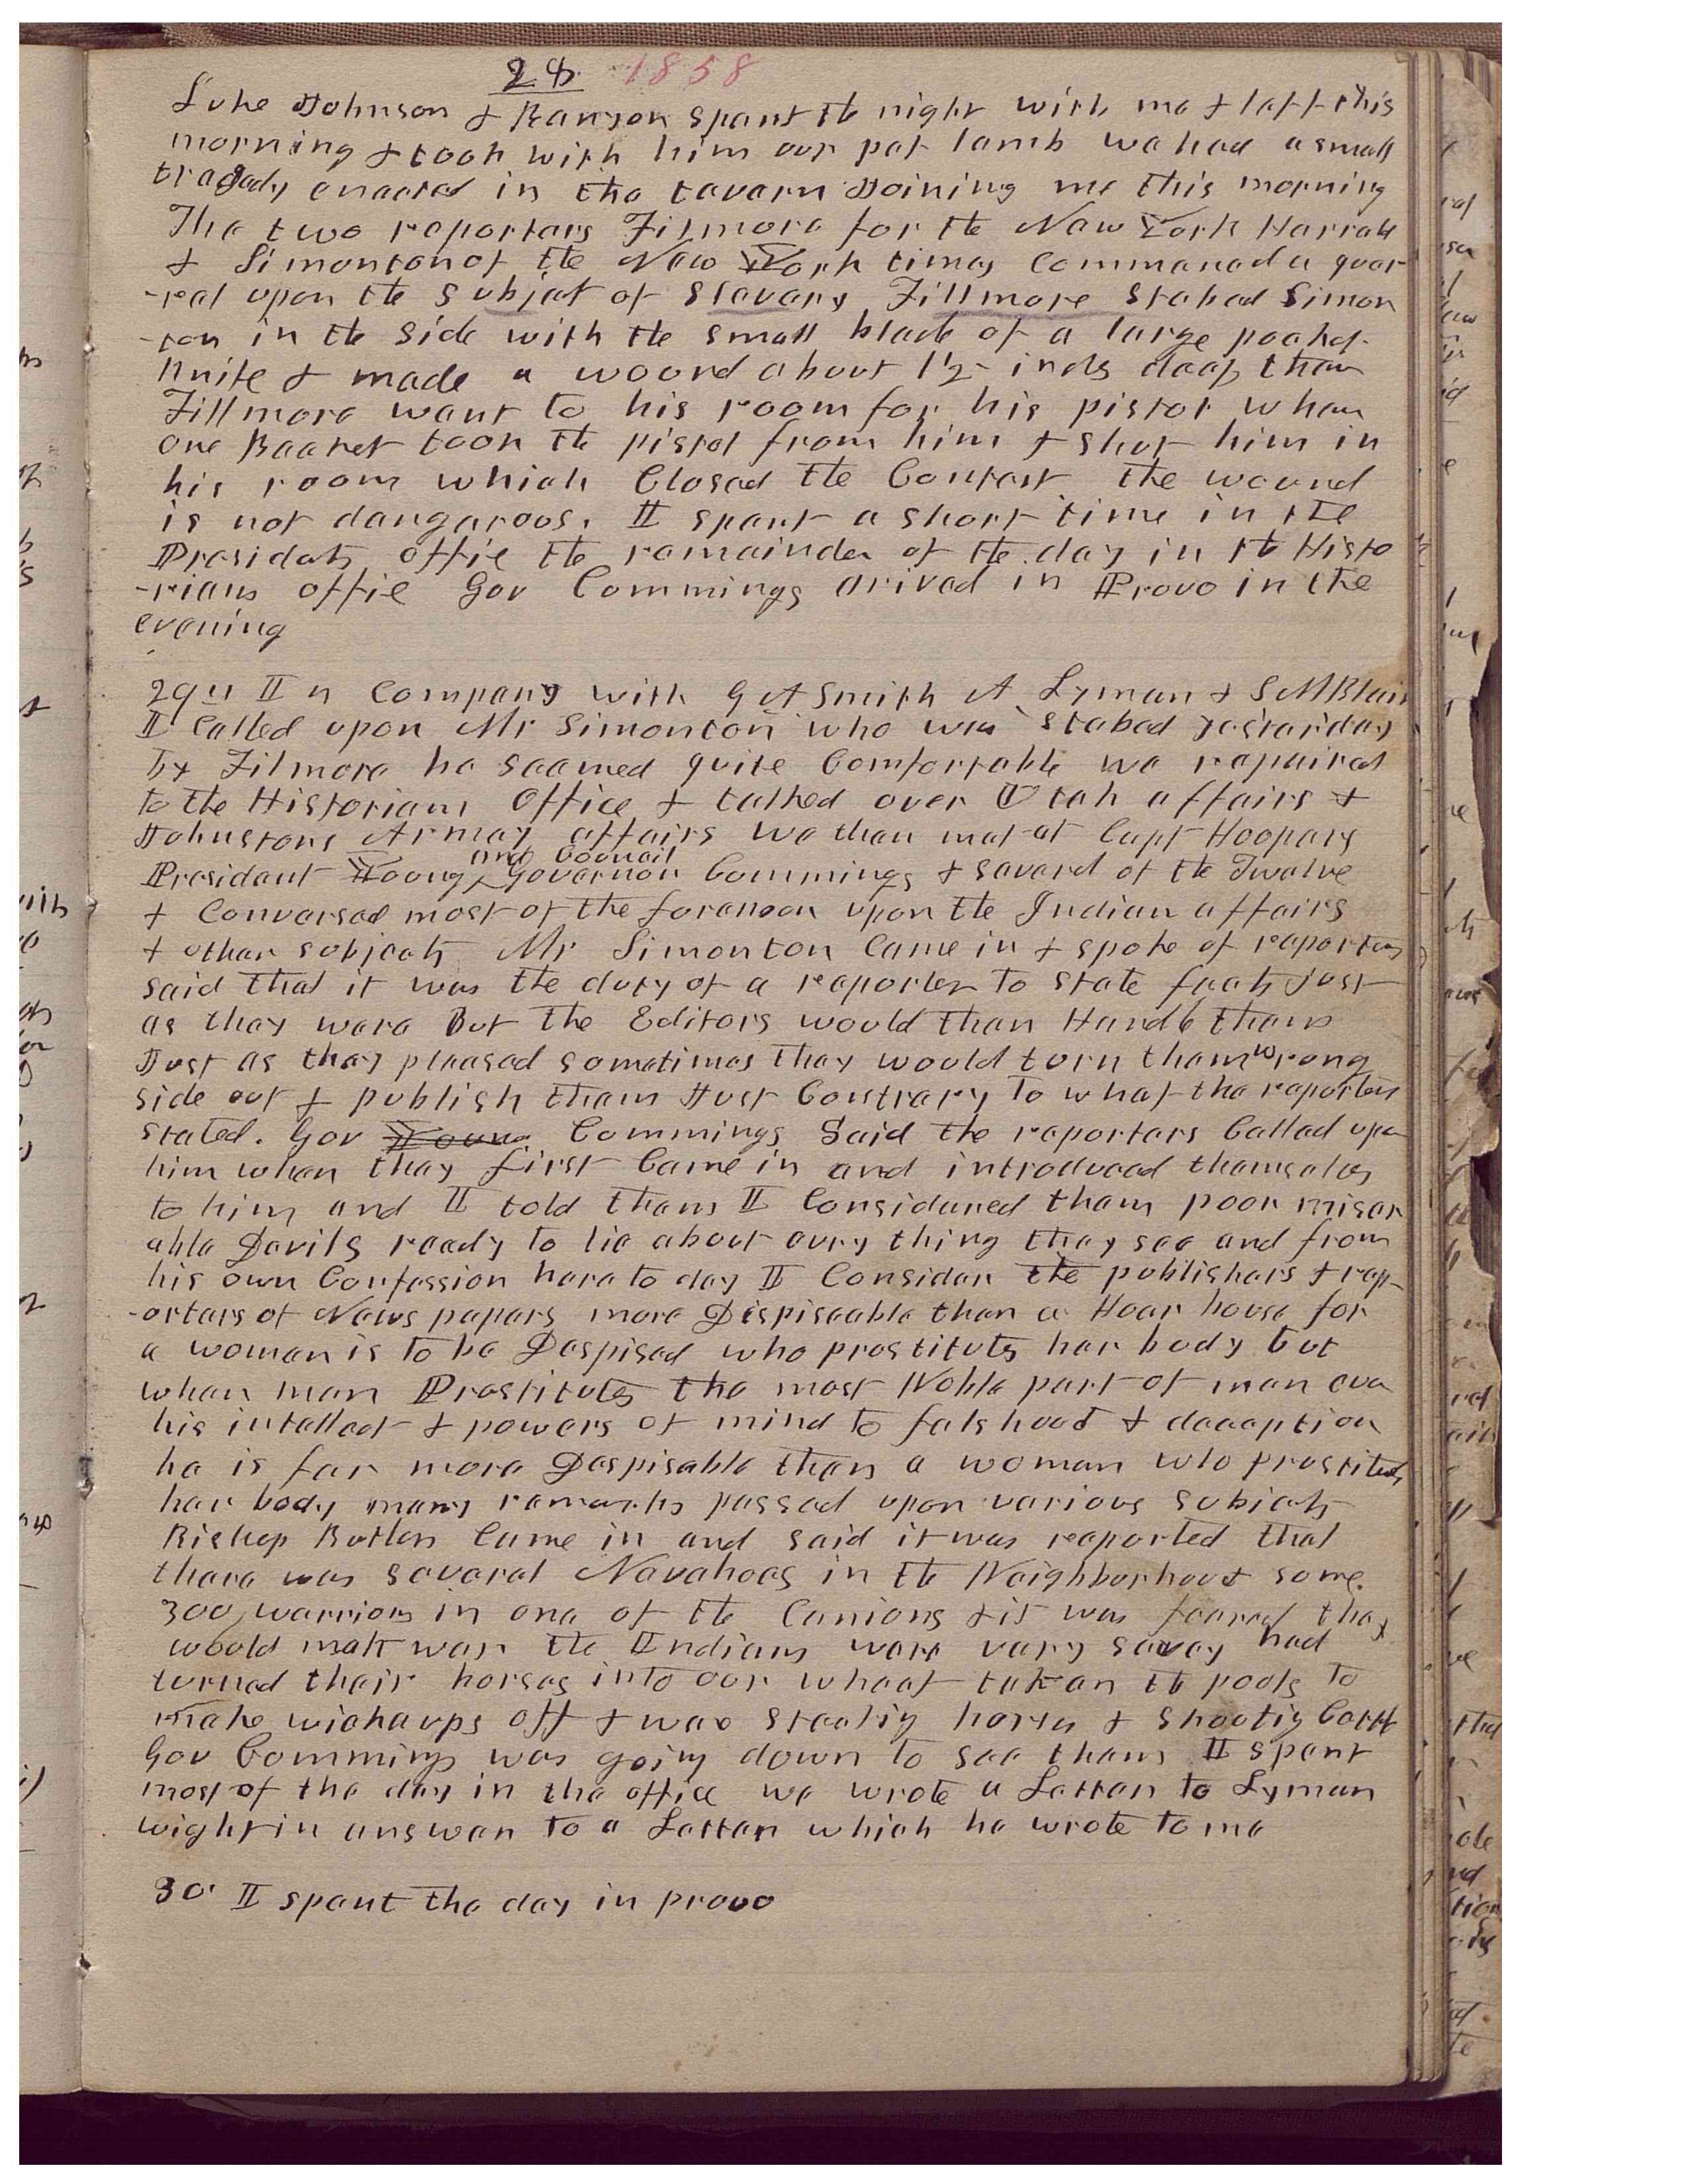 28 1858
Luke Johnson & Ranson spent the night with me & left this
morning & took with him our pet lamb we had a small
tragedy enacted in the tavern Joining me this morning
The two reporters Filmore for the New York Harrald
& Simonton of the New York times Commenced a quar
-rel upon the subject of Slavery Fillmore Stabed Simon
-ton in the side with the small blade of a large pocket
knife & made a wound about 1½ inch deep then
Fillmore went to his room for his pistol when
one Beaket took the pistol from him & shut him in
his room which Closed the Contest the wound
is not dangerous. I spent a short time in the
Presidents offie the remainder of the day in the Histo
-rians offie Gov Commings arived in Provo in the
evening
29th In Company with G A Smith A Lyman & S M Blair
I Called upon Mr Simonton who was stabed yesterday
by Filmore he seemed quite Comfortable we repaired
to the Historians Office & talked over Utah affairs &
Johnstons Armey affairs we then met at Capt Hoopers
and Council
President Young, Governor Commings & severl of the Twelve
& Conversed most of the forenoon upon the Indian affairs
& other subjects Mr Simonton Came in & spoke of reporters
said that it was the duty of a reporter to state facts Just
as they were But the Editors would then Handle them
Just as they pleased sometimes they would turn them wrong
side out & publish them Just Contrary to what the reporters
stated. Gov Young Commings Said the reporters Called upon
him when they first Came in and introduced themselves
to him and I told them I Considered them poor miser
able Devils ready to lie about evry thing they see and from
his own Confession here to day I Consider the publishers & rep-
-orters of News papers more Dispiseable than a Hoar house for
a woman is to be Despised who prostitutes her body but
when man Prostitutes the most Noble part of man eve
his intellect & powers of mind to falshood & deception
he is far more Despisable than a woman who prostitutes
her body many remarks passed upon various subjects
Bishop Butler Came in and said it was reported that
there was several Navahoes in the Neighborhood some
300 warriors in one of the Canions & it was feared they
would make war the Indians were very saucy had
turned their horses into our wheat taken the poels to
make wickeups off & was stealing horses & shooting Cattle
Gov Commings was going down to see them I spent
most of the day in the office we wrote a Letter to Lyman
wight in answer to a Letter which he wrote to me
30 I spent the day in provo